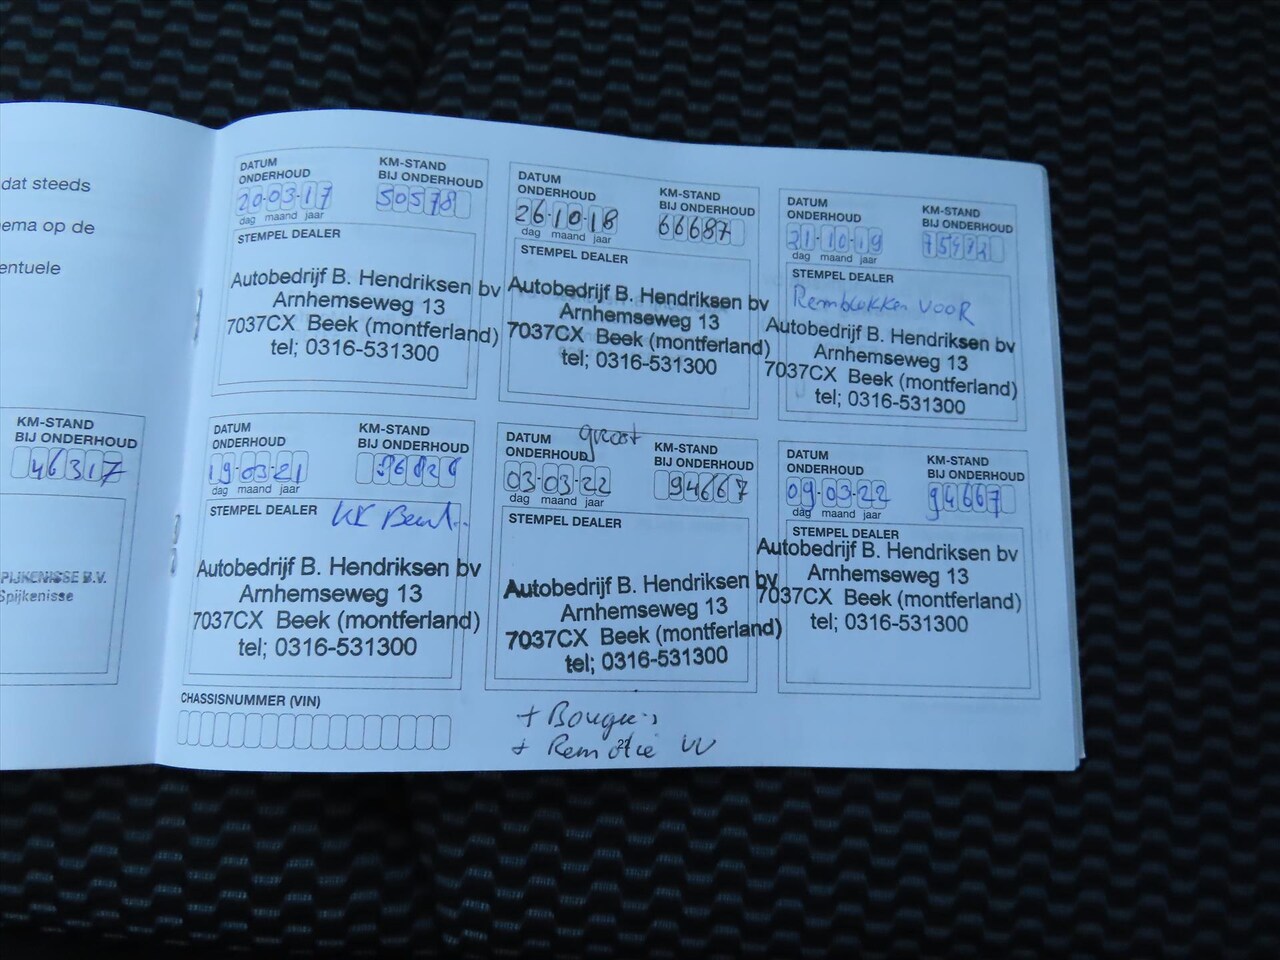 dat steeds
ema op de
entuele
KM-STAND
BIJ ONDERHOUD
46317
SPIJKENISSE B.V.
Spijkenisse
DATUM
ONDERHOUD
KM-STAND
BIJ ONDERHOUD
20-03-17
50578
dag maand jaar
STEMPEL DEALER
Autobedrijf B. Hendriksen bv
Arnhemseweg 13
7037CX Beek (montferland)
tel; 0316-531300
DATUM
ONDERHOUD
KM-STAND
BIJ ONDERHOUD
26-10-18
66687
dag maand jaar
STEMPEL DEALER
Autobedrijf B. Hendriksen bv
Arnhemseweg 13
7037CX Beek (montferland)
tel; 0316-531300
DATUM
ONDERHOUD
KM-STAND
BIJ ONDERHOUD
21-10-19
dag maand jaar
STEMPEL DEALER
Remblokken VOOR
Autobedrijf B. Hendriksen bv
Arnhemseweg 13
7037CX Beek (montferland)
tel; 0316-531300
DATUM
ONDERHOUD
KM-STAND
BIJ ONDERHOUD
19-03-21
dag maand jaar
STEMPEL DEALER
Autobedrijf B. Hendriksen bv
Arnhemseweg 13
7037CX Beek (montferland)
tel; 0316-531300
groot
DATUM
ONDERHOUD
KM-STAND
BIJ ONDERHOUD
03-03-22
94667
dag maand jaar
STEMPEL DEALER
Autobedrijf B. Hendriksen bv
Arnhemseweg 13
7037CX Beek (montferland)
tel; 0316-531300
DATUM
ONDERHOUD
KM-STAND
BIJ ONDERHOUD
09-03-22
94667
dag maand jaar
STEMPEL DEALER
Autobedrijf B. Hendriksen bv
Arnhemseweg 13
7037CX Beek (montferland)
tel; 0316-531300
CHASSISNUMMER (VIN)
+ Bougies
+ Rem olie VV
21